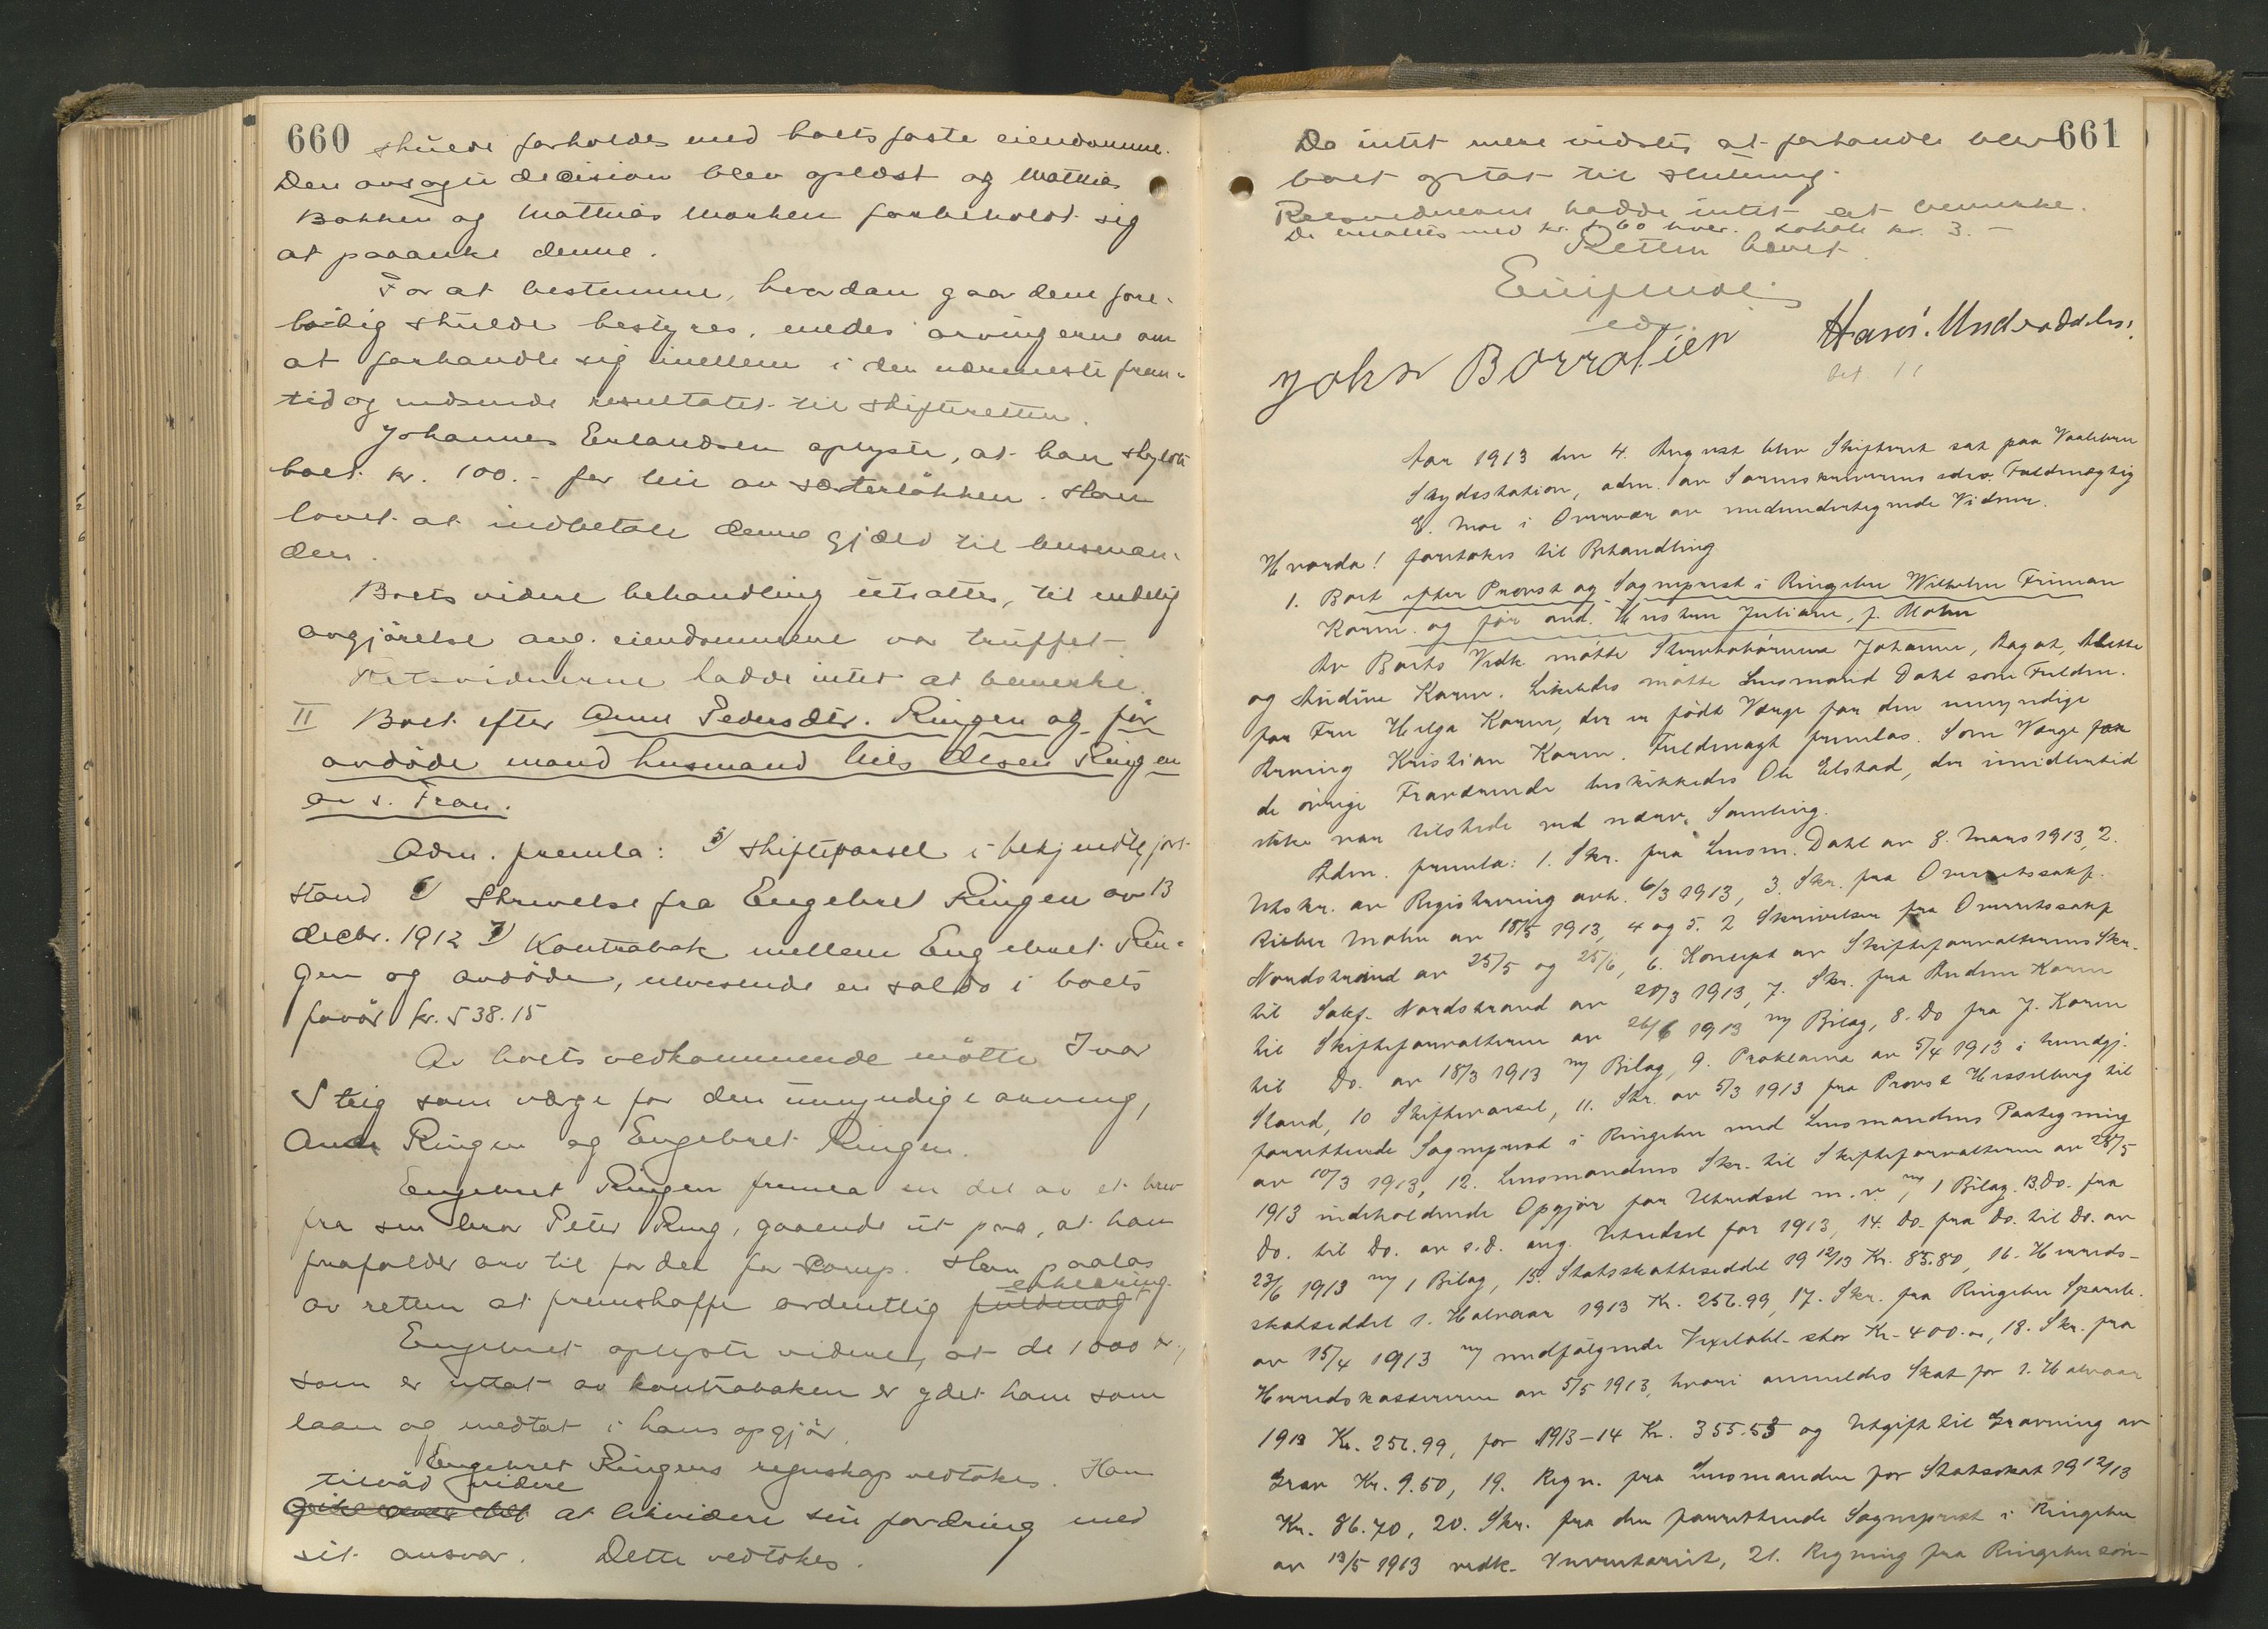 660
skulde forholdes med boets faste eiendomme.
Den avsagte decision blev oplæst og Mathias
Bakken og Mathias Marken forbeholdt sig
at paaanke denne.
For at bestemme, hvordan gaardene fore-
løbig skulde bestyres, enedes arvingerne om
at forhandle sig imellem i den nærmeste frem-
tid og indsende resultatet til skifteretten.
Johannes Erlandsen oplyste, at han skyldte
boet kr. 100.- for leie av sæterløkken. Han
lovet at indbetale denne gjæld til lensman-
den.
Boets videre behandling utsattes, til endelig
avgjørelse ang. eiendommene var truffet.
Retsvidnerne hadde intet at bemerke.
II Boet efter Anne Pedersdtr. Ringen og før
avdøde mand husmand Nils Olsen Ringen
av s. Fron.
Adm. fremla: 5) Skiftevarsel i bekjendtgjort
stand 6) Skrivelse fra Engebret Ringen av 13
decbr. 1912 7) Kontrabok mellem Engebret Rin-
gen og avdøde, utvisende en saldo i boets
favør kr. 538.15
Av boets vedkommende møtte Ivar
Steig som værge for den umyndige arving,
Anne Ringen og Engebret Ringen.
Engebret Ringen fremla en del av et brev
fra sin bror Peter Ring, gaaende ut paa, at han
frafalder arv til fordel for Hans paalas
erklæring
av retten at fremskaffe ordentlig fuldmagt
Engebret oplyste videre, at de 1000 kr.,
som er uttat av kontraboken er ydet ham som
laan og medtat i hans opgjør.
Engebret Ringens regnskap vedtokes. Han
tilbød videre
at likvidere sin fordring med
sit ansvar. Dette vedtokes.
661
Da intet mere vidstes at forhandle blev
boet optat til slutning.
Retsvidnerne hadde intet at bemerke.
De ersattes med kr. 60 hver. Lokale kr. 3.-
Retten hævet.
edv.
Johs Borrolien
Aar 1913 den 4. August blev Skifteret sat paa Vaalebru
Skydsstation, adm. av Sorenskriverens edsv. Fuldmægtig
E. Moe i Overvær av nedenundertegnede Vidner.
Hvorda! foretokes til Behandling
1. Boet efter Provst og Sogneprest i Ringebu Wilhelm Friman
Koren og før avd. Hustru Juliane, f. Mohn
Av Boets Vedk møtte Stervbobørnene Johanne, Aagot, Alette
og Andine Koren. Likeledes møtte Lensmand Dahl som Fuldm.
for Fru Helga Koren, der er født Værge for den umyndige
Arving Kristian Koren. Fuldmagt fremlas. Som Værge for
de øvrige Fraværende beskikkedes Ole Elstad, der imidlertid
ikke var tilstede ved nærv. Samling.
Adm. fremla: 1. Skr. fra Lensm. Dahl av 8. Mars 1913, 2.
Utskr. av Registrering avh. 6/3 1913, 3. Skr. fra Overretssakf.
Rieber Mohn av 18/5 1913, 4 og 5. 2 Skrivelser fra Overretssakf
Nordstrand av 25/5 og 25/6, 6. Koncept av Skifteforvalterens Skr.
til Sakf. Nordstrand av 20/3 1913, 7. Skr. fra Andine Koren
til Skifteforvalteren av 26/6 1913 m/ Bilag, 8. Do fra J. Koren
til Do. av 18/3 1913 m/ Bilag, 9. Proklama av 5/4 1913 i kundgj.
Stand, 10 Skiftevarsel, 11. Skr. av 5/3 1913 fra Provst Hesselberg til
forrettende Sogneprest i Ringebu med Lensmandens Paategning
av 10/3 1913, 12. Lensmandens Skr. til Skifteforvalteren av 28/5
1913 indeholdende Opgjør for Utredsel m.v. m/ 1 Bilag. 13. Do. fra
Do. til Do. av s.d. ang. Utredsel for 1913, 14. Do. fra Do. til Do. av
23/6 1913 m/ 1 Bilag, 15. Statsskatteseddel 1912/13 Kr. 85.80, 16. Herreds-
skatseddel 1. Halvaar 1913 Kr. 256.99, 17. Skr. fra Ringebu Spareb.
av 15/4 1913 m/ medfølgende Vexelobl. stor Kr. 400.00, 18. Skr. fra
Herredskassereren av 5/5 1913, hvori anmeldes Skat for 1. Halvaar
1913 Kr. 256.99, for 1913-14 Kr. 355.53 og Utgift til Gravning av
Grav Kr. 9.50, 19. Regn. fra Lensmanden for Statsskat 1912/13
Kr. 86.70, 20. Skr. fra den forrettende Sogneprest i Ringebu
av 13/5 1913 vedk. Inventariet, 21. Regning fra Ringebu søn-